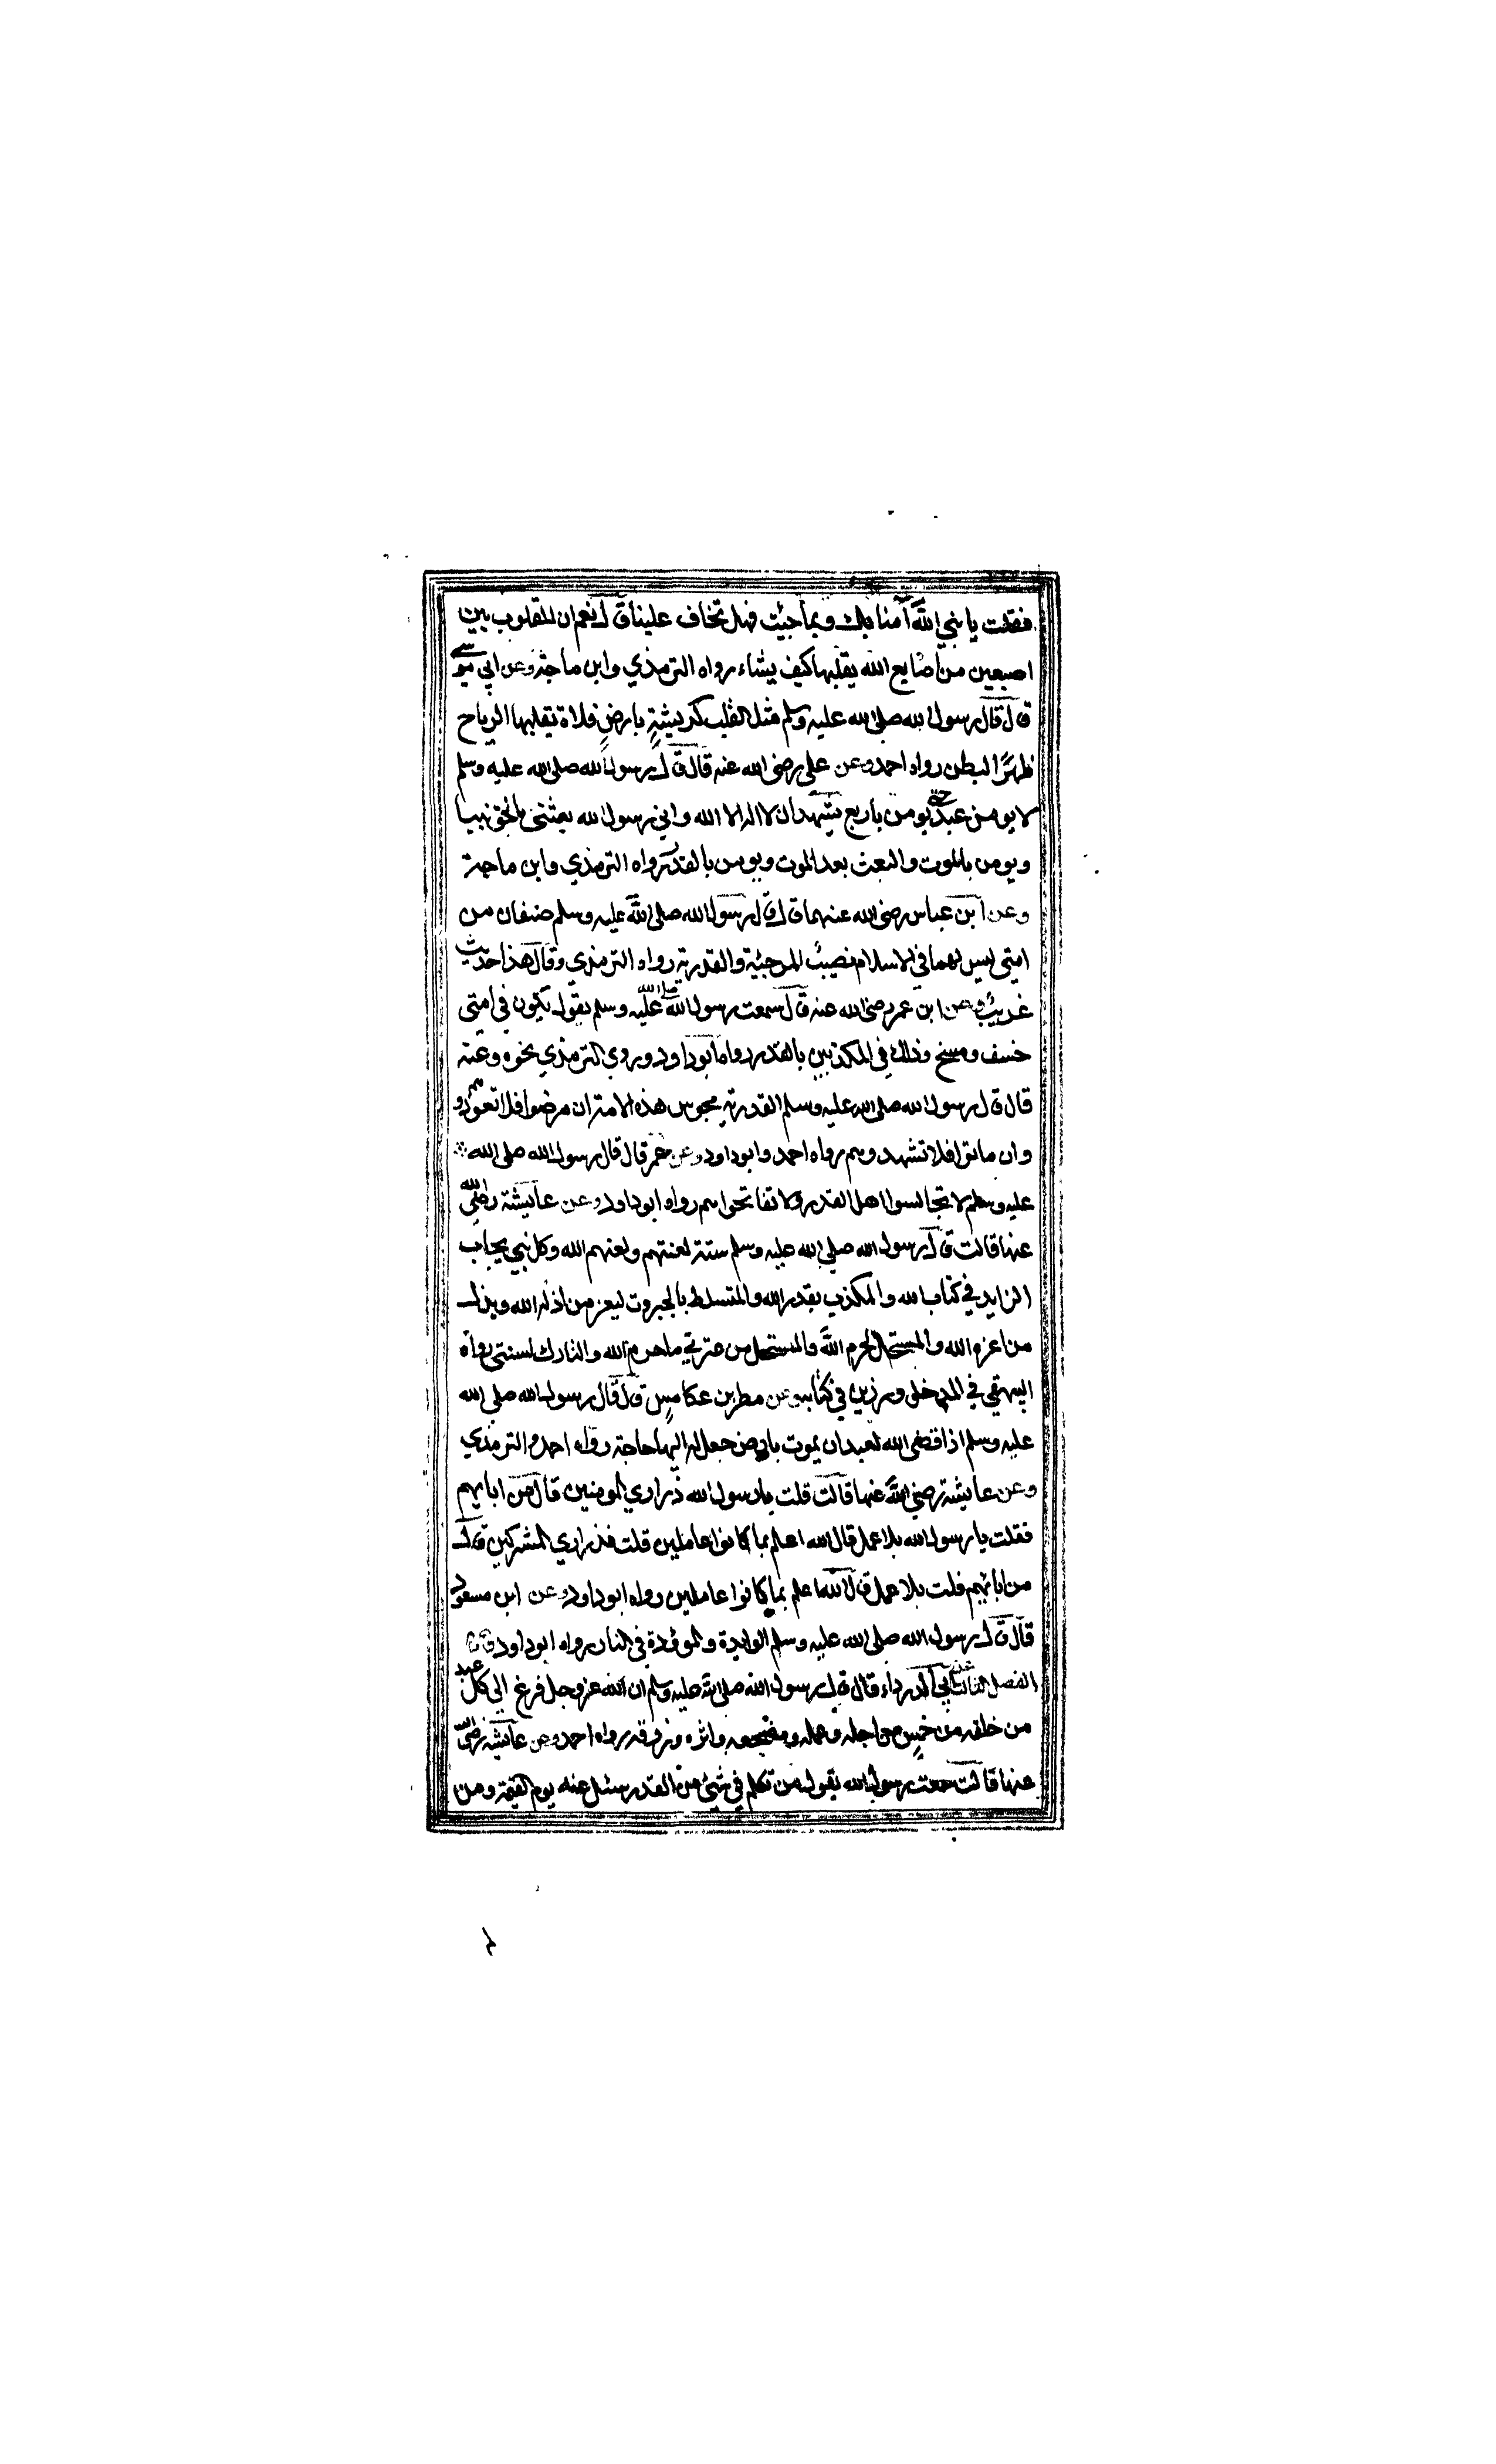 فقلت يا نبي الله آمنا بك وبما جيئت فهل تخاف علينا قال نعم ان القلوب بين
اصبعين من اصابع الله يقلبها كيف يشاء رواه الترمذي وابن ماجة وعن ابي موسى
قال قال رسول الله صلى الله عليه وسلم مثل القلب كريشة بارض فلاة تقلبها الرياح
ظهرًا لبطن رواه احمد وعن علي رضى الله عنه قال قال رسول الله صلى الله عليه وسلم
لا يومن عبد حتى يومن باربع يشهد ان لا اله الا الله واني رسول الله بعثنى بالحق نبيا
ويومن بالموت والبعث بعد الموت ويومن بالقدر رواه الترمذي وابن ماجة
وعن ابن عباس رضى الله عنهما قال قال رسول الله صلى الله عليه وسلم صنفان من
امتي ليس لهما في الاسلام نصيب المرجئية والقدرية رواه الترمذي وقال هذا حديث
غريب وعن ابن عمر رضى الله عنه قال سمعت رسول الله صلى الله عليه وسلم يقول يكون في امتي
خسف ومسخ وذلك في المكذبين بالقدر رواه ابو داود وروي الترمذي نحوه وعنه
قال قال رسول الله صلى الله عليه وسلم القدرية مجوس هذه الامة ان مرضوا فلا تعودوهم
وان ماتوا فلا تشهدوهم رواه احمد وابو داود وعن عمر قال قال رسول الله صلى الله
عليه وسلم لا تجالسوا اهل القدر ولا تفاتحواهم رواه ابو داود وعن عايشة رضي الله
عنها قالت قال رسول الله صلى الله عليه وسلم ستة لعنتهم ولعنهم الله وكل نبي يجاب
الزايد في كتاب الله والمكذب بقدر الله والمتسلط بالجبروت ليعز من اذله الله ويذل
من اعزه الله والمستحل لحرم الله والمستحل من عترتي ما حرم الله والتارك لسنتي رواه
البيهقي في المدخل ورزين في كتابه وعن مطر بن عكامس قال قال رسول الله صلى الله
عليه وسلم اذا قضى الله لعبد ان يموت بارض جعل له اليها حاجة رواه احمد والترمذي
وعن عايشة رضي الله عنها قالت قلت يا رسول الله ذراري المومنين قال من ابايهم
فقلت يا رسول الله بلا عمل قال الله اعلم بما كانوا عاملين قلت فذراري المشركين قال
من ابائهم قلت بلا عمل قال الله اعلم بما كانوا عاملين رواه ابو داود وعن ابن مسعود
قال قال رسول الله صلى الله عليه وسلم الوايدة والموؤدة في النار رواه ابو داود
الفصل الثالث عن ابي الدرداء قال قال رسول الله صلى الله عليه وسلم ان الله عز وجل فرغ الى كل عبد
من خلقه من خمس من اجله وعمله ومضجعه واثره ورزقه رواه احمد وعن عايشه رضي الله
عنها قالت سمعت رسول الله يقول من تكلم في شئ من القدر سئل عنه يوم القيمة ومن